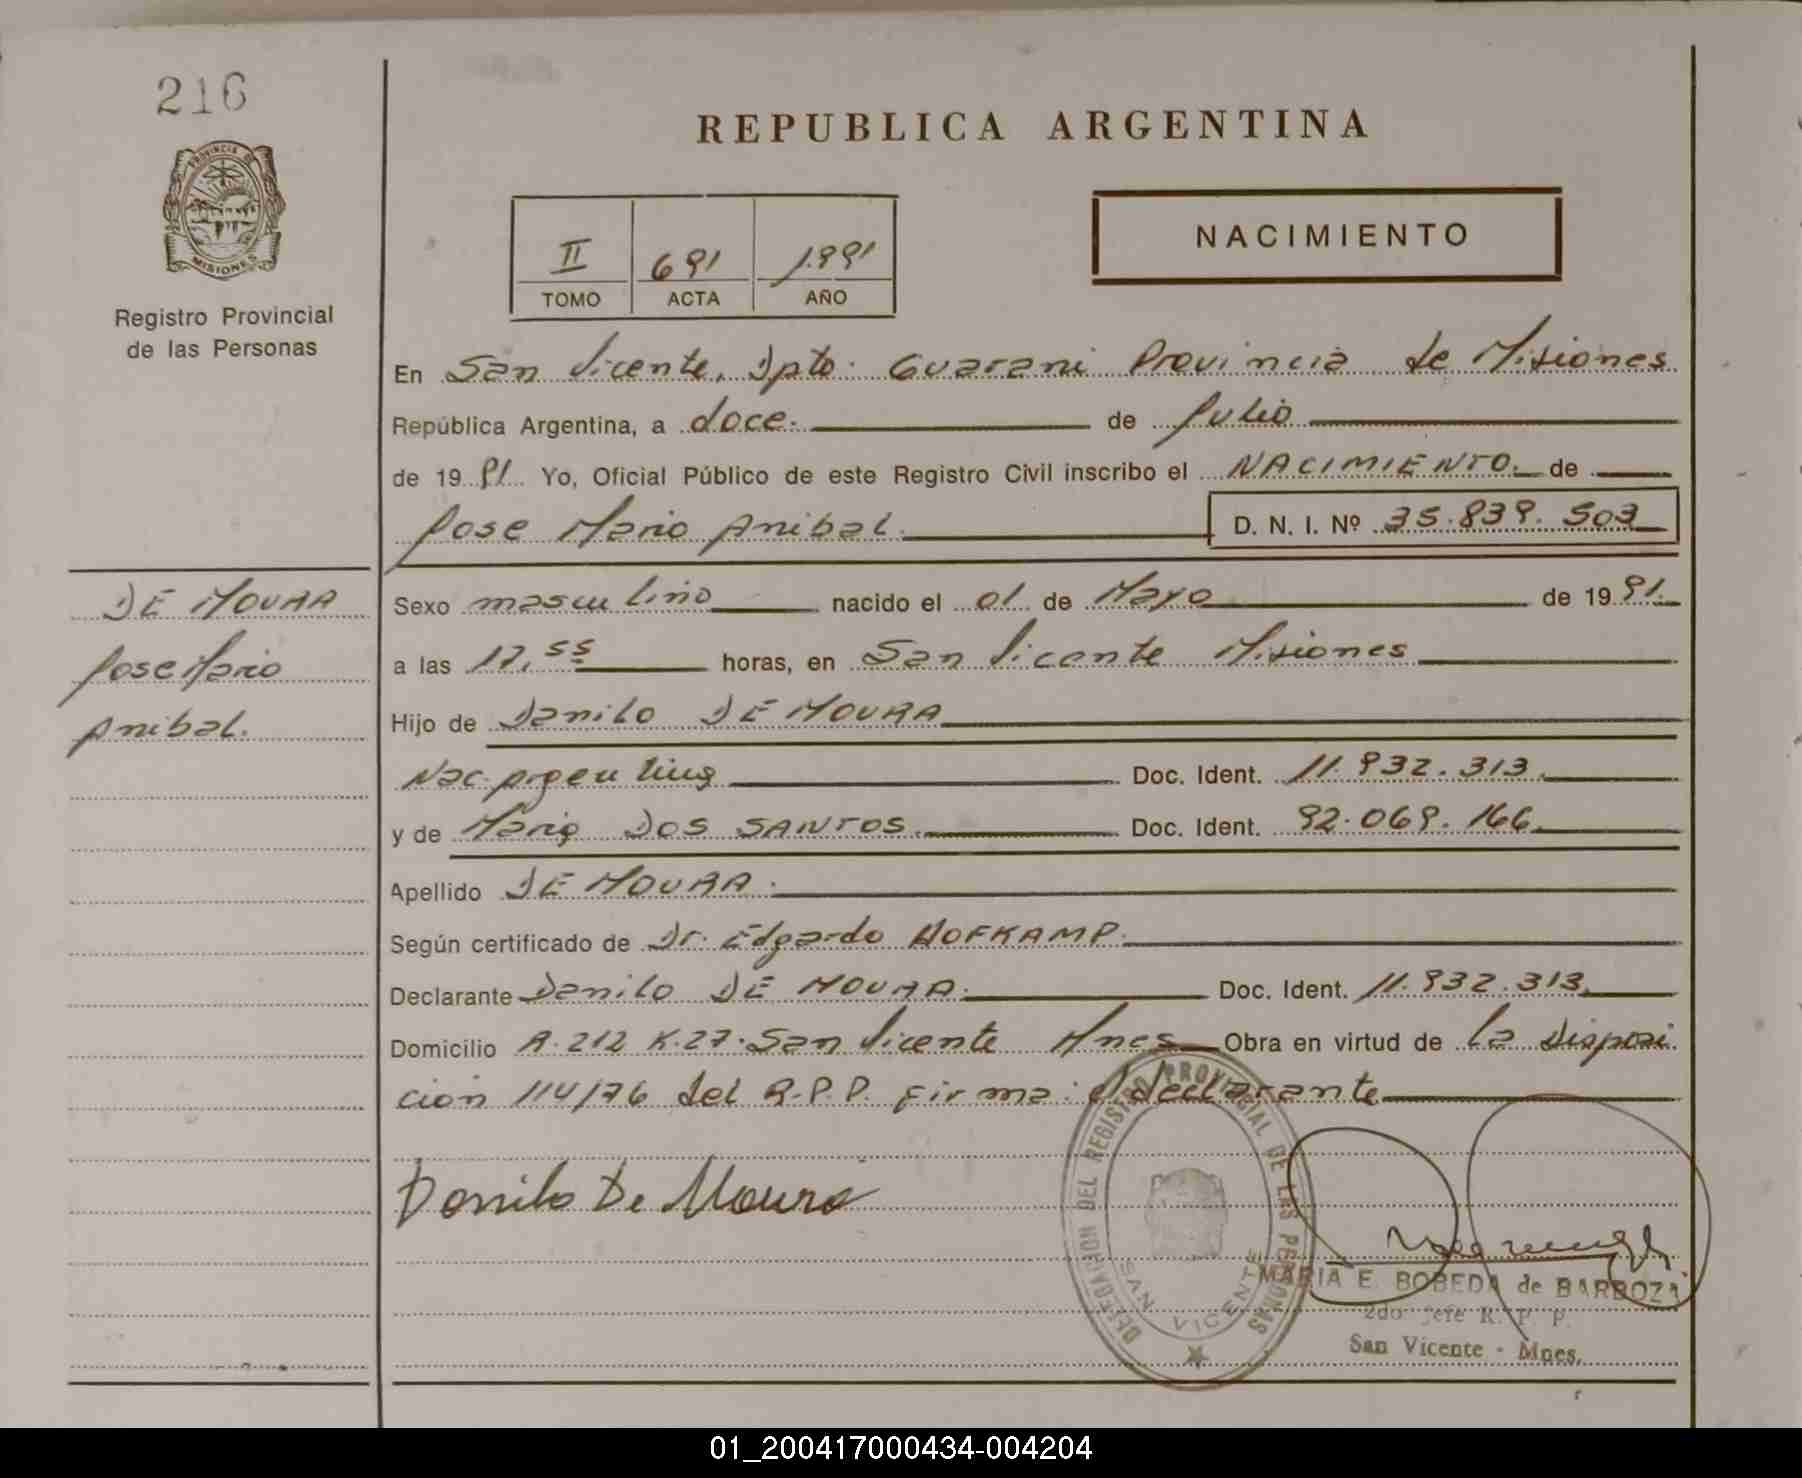 216
PROVINCIA DE
MISIONES
Registro Provincial
de las Personas
DE MOURA
Jose Mario
Anibal.
REPUBLICA ARGENTINA
II 691 1.991
TOMO ACTA AÑO
NACIMIENTO
En San Vicente, Dpto. Guarani Provincia de Misiones
República Argentina, a doce. de Julio
de 1991 Yo, Oficial Público de este Registro Civil inscribo el NACIMIENTO. de
Jose Mario Anibal. D. N. I. Nº 35.839.503
Sexo masculino nacido el 01 de Mayo de 1991.
a las 17,55 horas, en San Vicente Misiones
Hijo de Danilo DE MOURA
Nac. argentina Doc. Ident. 11.932.313.
y de Maria DOS SANTOS. Doc. Ident. 92.069.166
Apellido DE MOURA.
Según certificado de Dr. Edgardo HOFKAMP.
Declarante Danilo DE MOURA. Doc. Ident. 11.932.313.
Domicilio A.212 K.27. San Vicente Mnes Obra en virtud de la Disposi
ción 114/76 del R.P.P. Firma: el declarante
Danilo De Moura
DELEGACION DEL REGISTRO PROVINCIAL DE LAS PERSONAS
SAN VICENTE
MARIA E. BOBEDA de BARBOZA
2do. Jefe R. P. P.
San Vicente - Mnes.
01_200417000434-004204